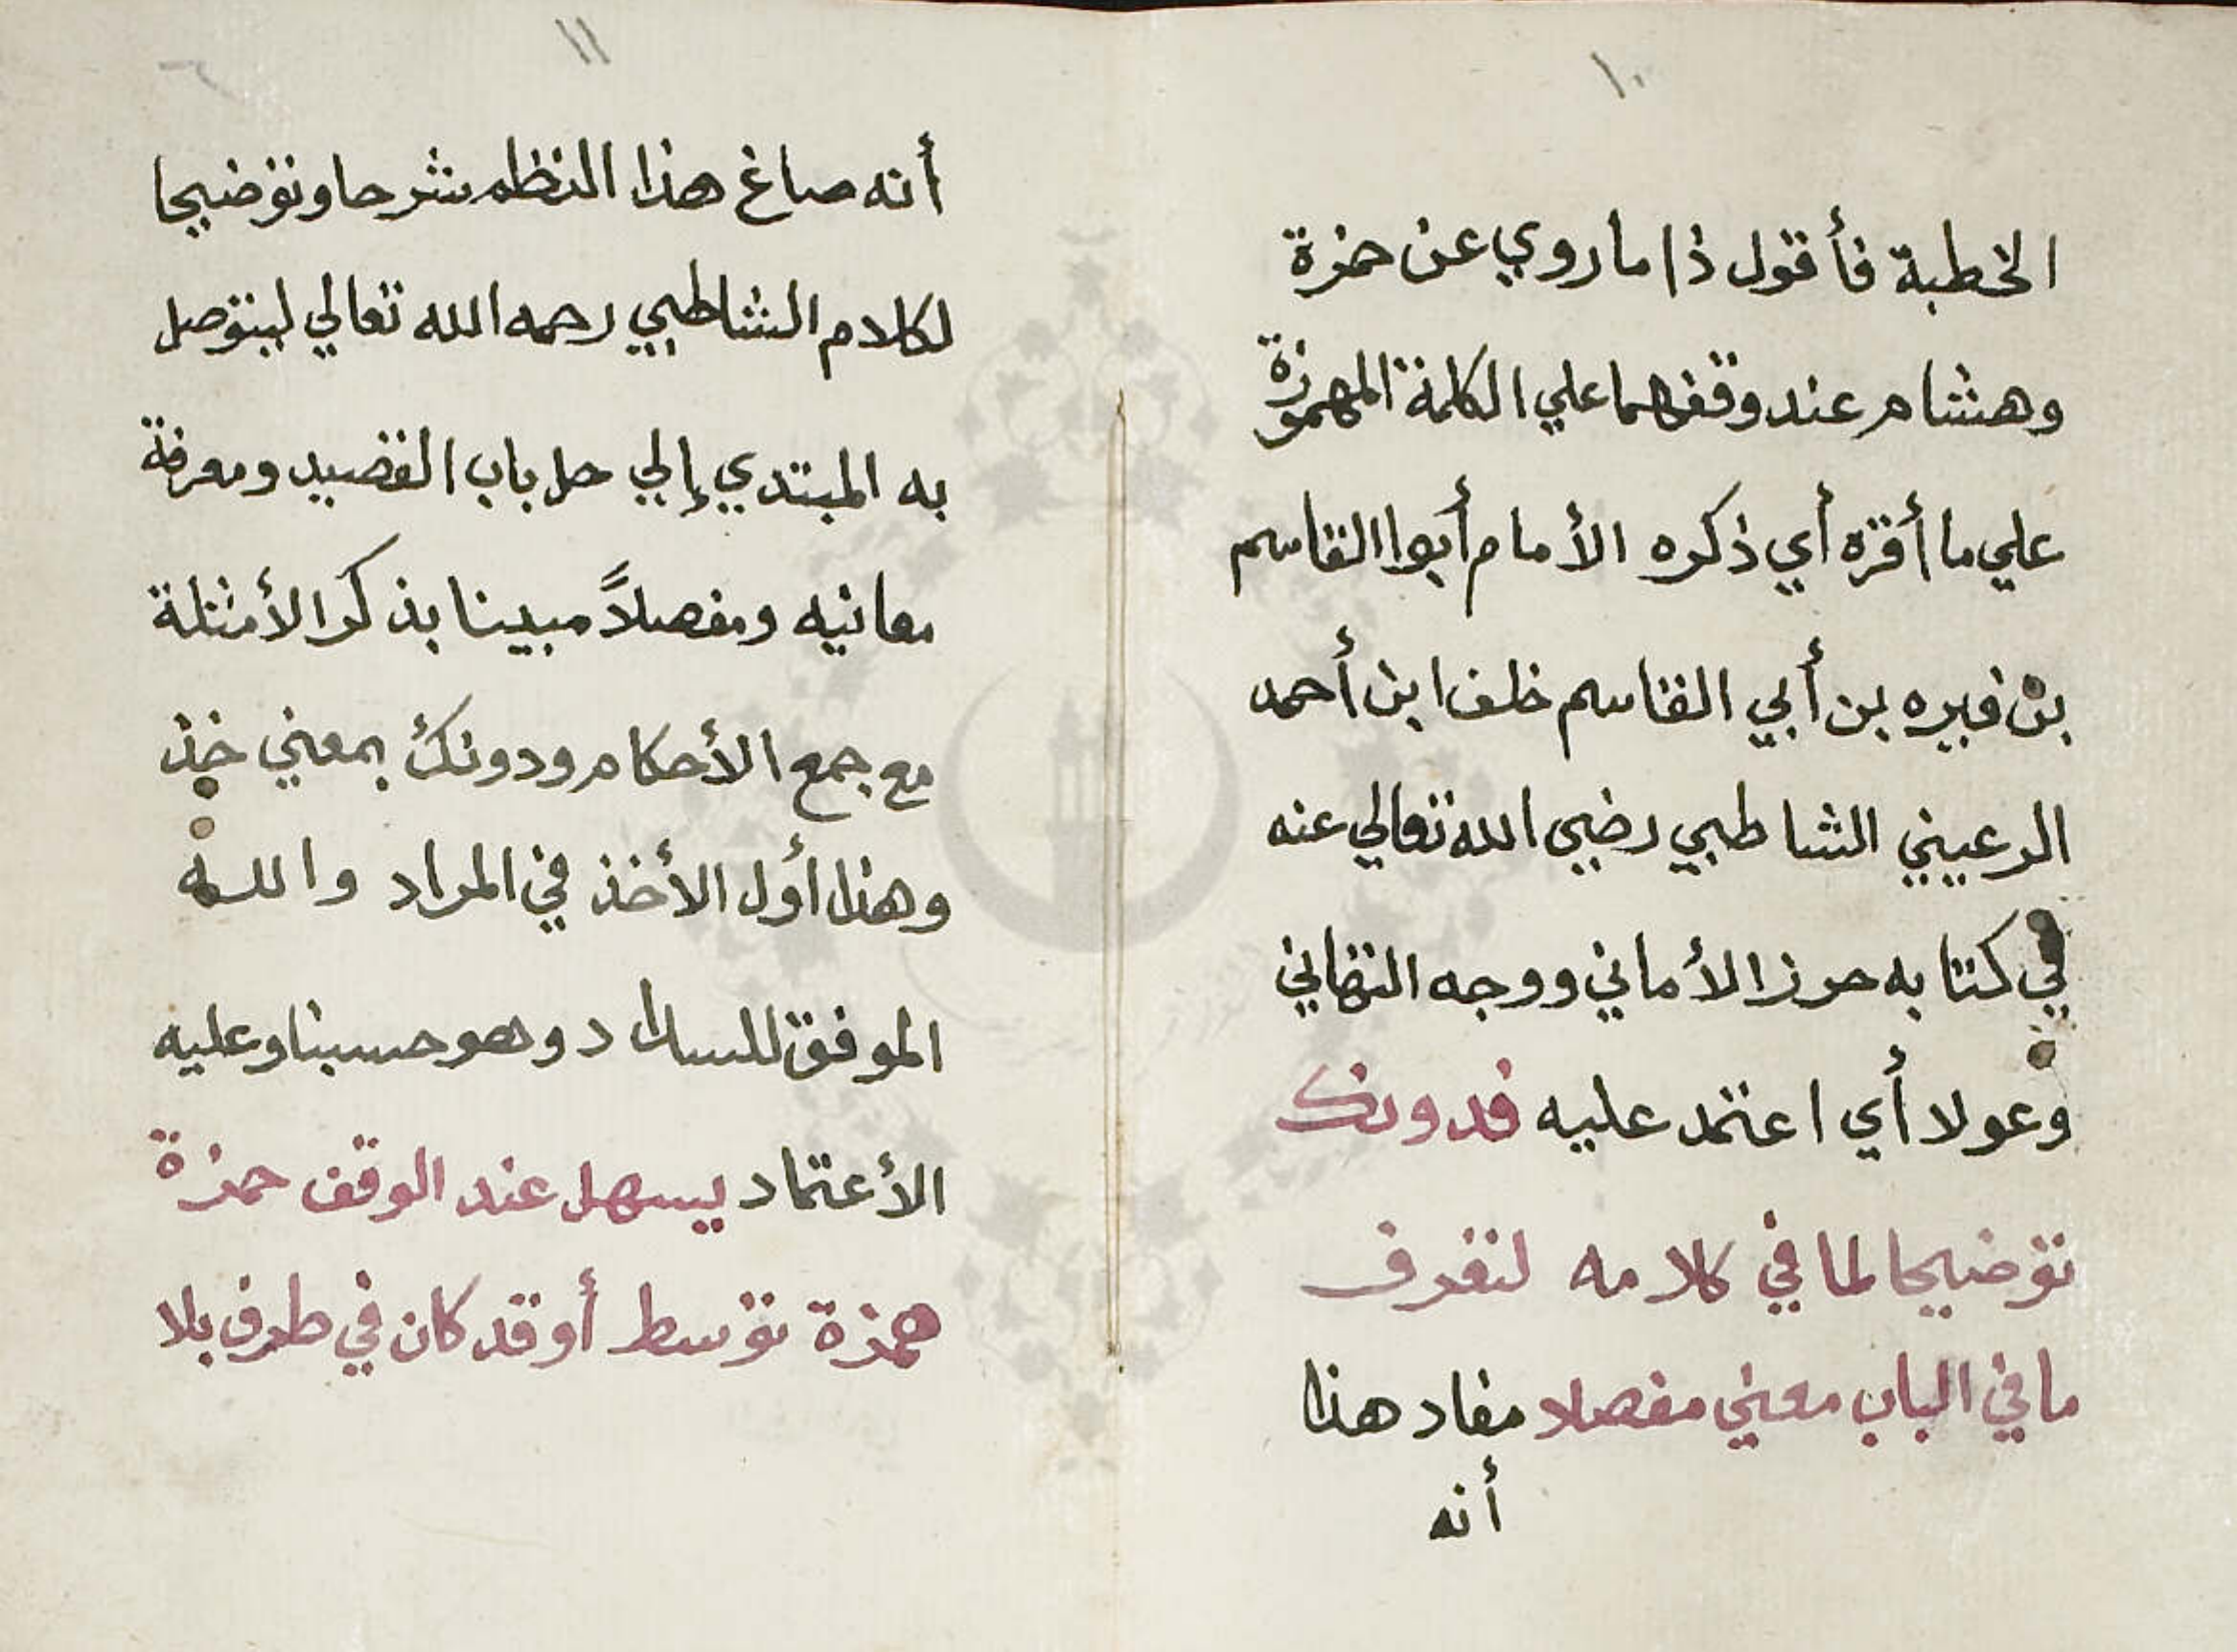 ١٠
الخطبة فأقول ذا ما روي عن حمزة
وهشام عند وقفهما علي الكلمة المهموزة
علي ما أقره أي ذكره الأمام أبوا القاسم
بن فيره بن أبي القاسم خلف ابن أحمد
الرعيني الشاطبي رضي الله تعالي عنه
في كتابه حرز الأماني ووجه التهاني
وعولا أي اعتمد عليه فدونك
توضيحا لما في كلامه لتعرف
ما في الباب معني مفصلا مفاد هذا
أنه
١١
أنه صاغ هذا النظم شرحا وتوضيحا
لكلام الشاطبي رحمه الله تعالي ليتوصل
به المبتدي إلي حل باب القصيد ومعرفة
معانيه ومفصلاً مبينا بذكر الأمثلة
مع جمع الأحكام ودونك بمعني خذ
وهذا أول الأخذ في المراد والله
الموفق للسداد وهو حسبنا وعليه
الأعتماد يسهل عند الوقف حمزة
همزة توسط أو قد كان في طرف بلا